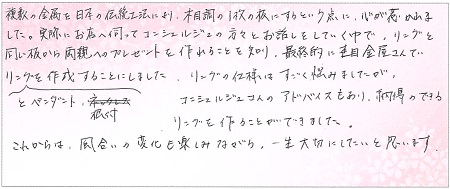 複数の金属を日本の伝統工法により、木目調の1枚の板にするという点に、心が惹かれま
した。実際にお店へ伺ってコンシェルジュの方々とお話をしていく中で、リングと
同じ板から両親へのプレゼントを作れることを知り、最終的に杢目金屋さんで
リングを作成することにしました。リングの仕様はすごく悩みましたが、
とペンダント、ネックレス
根付
コンシェルジュさんのアドバイスもあり、納得のできる
リングを作ることができました。
これからは、風合いの変化も楽しみながら、一生大切にしたいと思います。